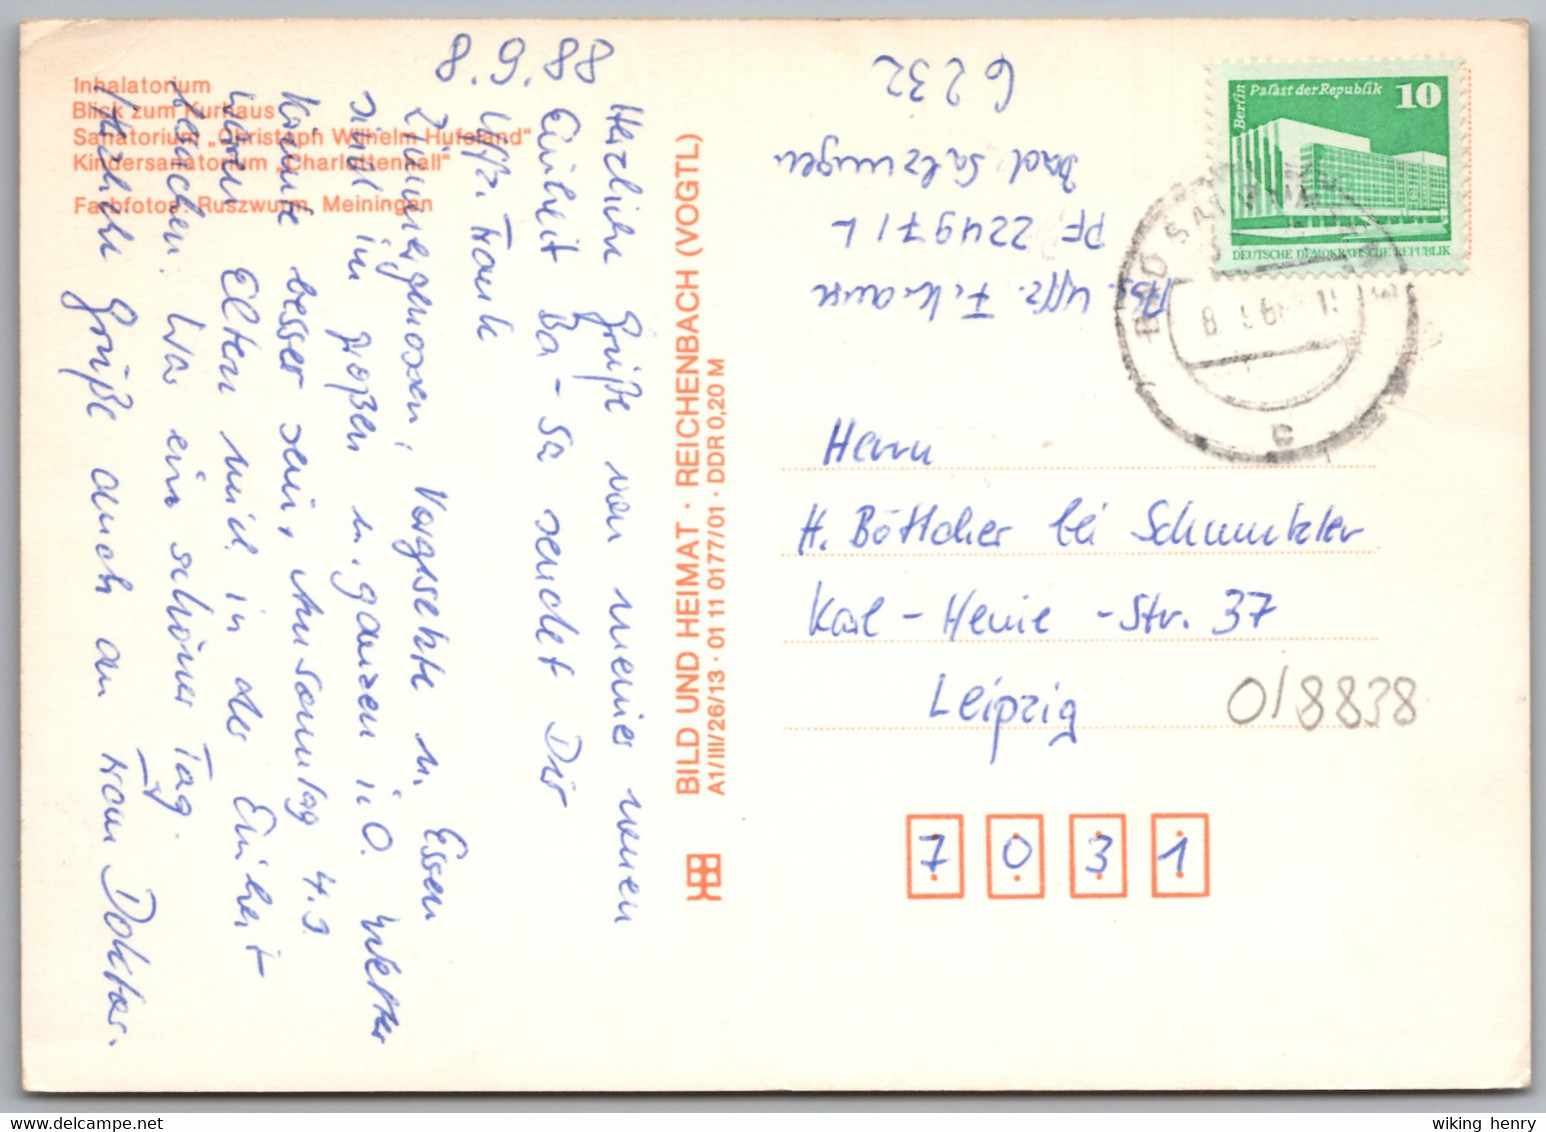 Inhalatorium
Blick zum Kurhaus
Sanatorium „Christoph Wilhelm Hufeland“
Kindersanatorium „Charlottenhall“
Farbfotos: Ruszwurm, Meiningen
8.9.88
Herzliche Grüße von meiner neuen
Einheit Ba-Sa sendet Dir
Uffz. Frank
Zimmergenossen, Vorgesetzte u. Essen
sind im großen u. ganzen i.O. Wetter
könnte besser sein, Am Sonntag 4.9.
waren Eltern mich in der Einheit
besuchen. War ein schöner Tag.
Herzliche Grüße auch an Frau Doktor.
BILD UND HEIMAT · REICHENBACH (VOGTL)
A1/III/26/13 · 01 11 0177/01 · DDR 0,20 M
Abs. Uffz. F.
PF 22497/L
Bad Salzungen
6232
Berlin Palast der Republik 10
DEUTSCHE DEMOKRATISCHE REPUBLIK
c
Herrn
H. Böttcher bei
Karl-Heine-Str. 37
Leipzig
0/8838
7 0 3 1
wiking henry